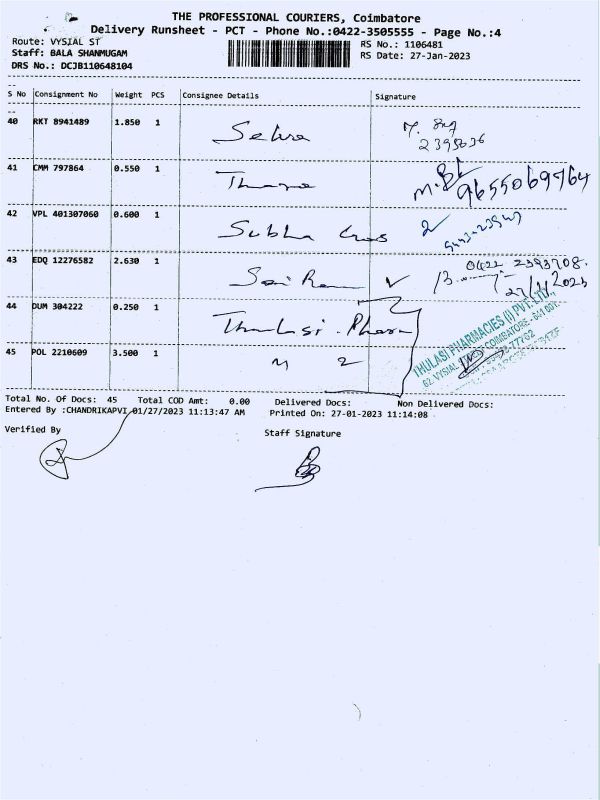 THE PROFESSIONAL COURIERS, Coimbatore
Delivery Runsheet - PCT - Phone No.:0422-3505555 - Page No.:4
Route: VYSIAL ST
RS No.: 1106481
Staff: BALA SHANMUGAM
RS Date: 27-Jan-2023
DRS No.: DCJB110648104
S No Consignment No Weight PCS Consignee Details Signature
40 RKT 8941489 1.850 1
2395036
41 CMM 797864 0.550 1
9655069764
42 VPL 401307060 0.600 1 Subha
43 EDQ 12276582 2.630 1 Sai Ram
0422 2393708.
27/1/2023
44 DUM 304222 0.250 1 Thulasi. Pharm
THULASI PHARMACIES (I) PVT. LTD.,
62, VYSIAL COIMBATORE - 641 001.
45 POL 2210609 3.500 1 2
Total No. Of Docs: 45 Total COD Amt: 0.00 Delivered Docs: Non Delivered Docs:
Entered By :CHANDRIKAPVI 01/27/2023 11:13:47 AM Printed On: 27-01-2023 11:14:08
Verified By Staff Signature